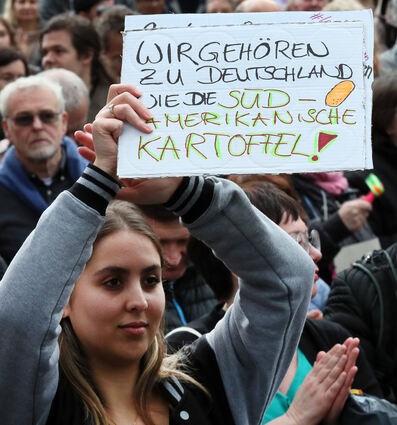 WIR GEHÖREN
ZU DEUTSCHLAND
WIE DIE SÜD-
AMERIKANISCHE
KARTOFFEL!